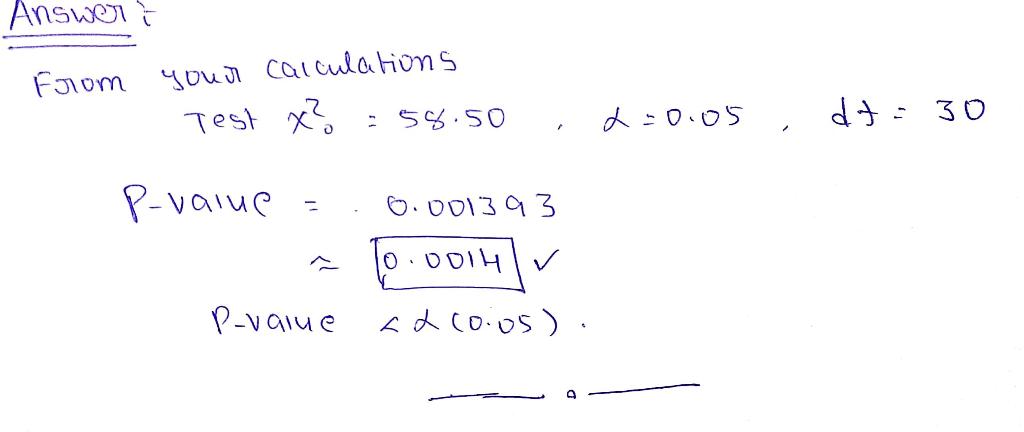 Answer :
From your calculations
Test χ²₀ = 58.50 , α = 0.05 , df = 30
P-value = . 0.001393
≈ 0.0014 ✓
P-value < α (0.05) .